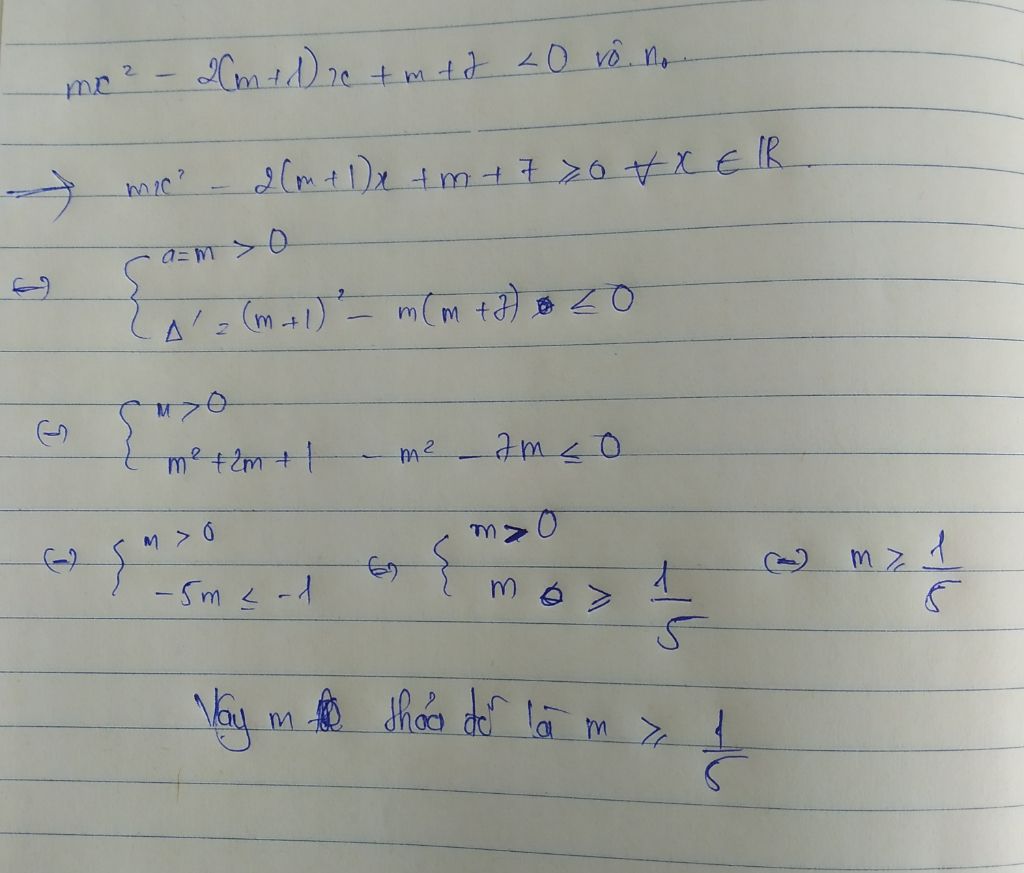 mx² - 2(m+1)x + m + 7 < 0 vô no
→ mx² - 2(m+1)x + m + 7 ≥ 0 ∀ x ∈ ℝ.
⇔ { a=m > 0
Δ' = (m+1)² - m(m+7) ≤ 0
⇔ { m > 0
m² + 2m + 1 - m² - 7m ≤ 0
⇔ { m > 0 ⇔ { m > 0 ⇔ m ≥ 1/5
-5m ≤ -1 m ≥ 1/5
Vậy m thỏa đề là m ≥ 1/5